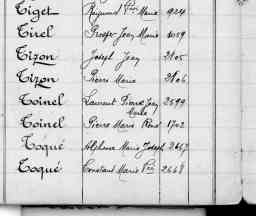 Tiget Raymond Marie 1924
Tirel Prosper Jean Marie 1059
Tizon Joseph Jean 2105
Tizon Pierre Marie 2106
Toinel Laurent Pierre Jean Marie 2599
Toinel Pierre Marie René 1702
Toqué Alphonse Marie Joseph 2667
Toqué Constant Marie 2668